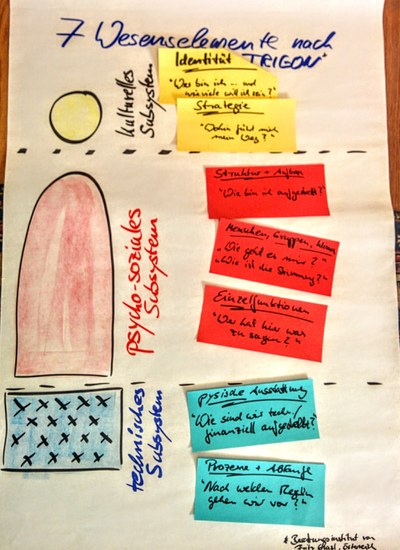 7 Wesenselemente nach
TRIGON*
Kulturelles
Subsystem
Identität
"Wer bin ich – und
wie viele will ich sein?"
Strategie
"Wohin führt mich
mein Weg?"
Psycho-soziales
Subsystem
Struktur + Aufbau
"Wie bin ich aufgestellt?"
Menschen, Gruppen, Klima
"Wie geht es mir?"
"Wie ist die Stimmung?"
Einzelfunktionen
"Wer hat hier was
zu sagen?"
technisches
Subsystem
pysische Ausstattung
"Wie sind wir tech./
finanziell aufgestellt?"
Prozesse + Abläufe
"Nach welchen Regeln
gehen wir vor?"
* Beratungsinstitut von
Fritz Glasl, Österreich